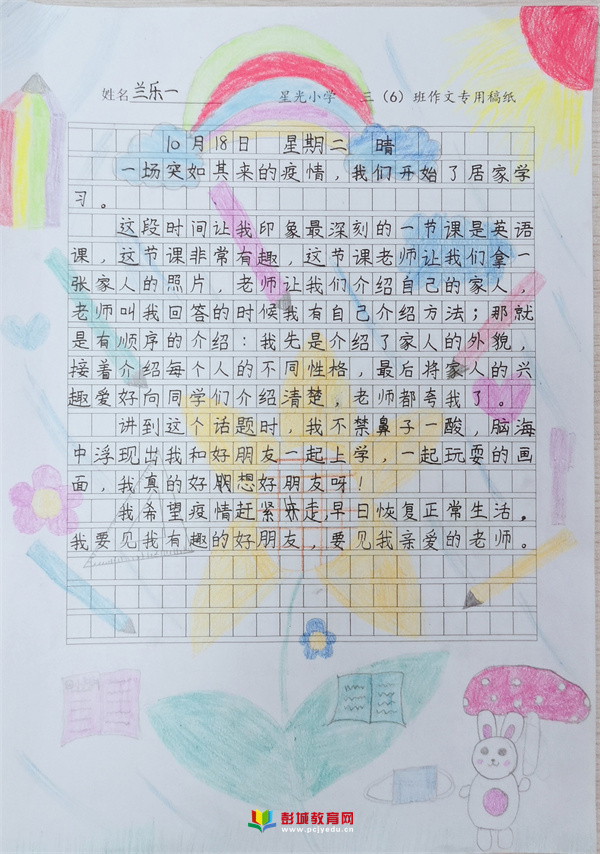 姓名兰乐一 星光小学 三（6）班作文专用稿纸
10月18日 星期二 晴
一场突如其来的疫情，我们开始了居家学
习。
这段时间让我印象最深刻的一节课是英语
课，这节课非常有趣，这节课老师让我们拿一
张家人的照片，老师让我们介绍自己的家人，
老师叫我回答的时候我有自己介绍方法；那就
是有顺序的介绍：我先是介绍了家人的外貌，
接着介绍每个人的不同性格，最后将家人的兴
趣爱好向同学们介绍清楚，老师都夸我了。
讲到这个话题时，我不禁鼻子一酸，脑海
中浮现出我和好朋友一起上学，一起玩耍的画
面，我真的好想好朋友呀！
我希望疫情赶紧走，早日恢复正常生活。
我要见我有趣的好朋友，要见我亲爱的老师。
彭城教育网
www.pcjyedu.cn